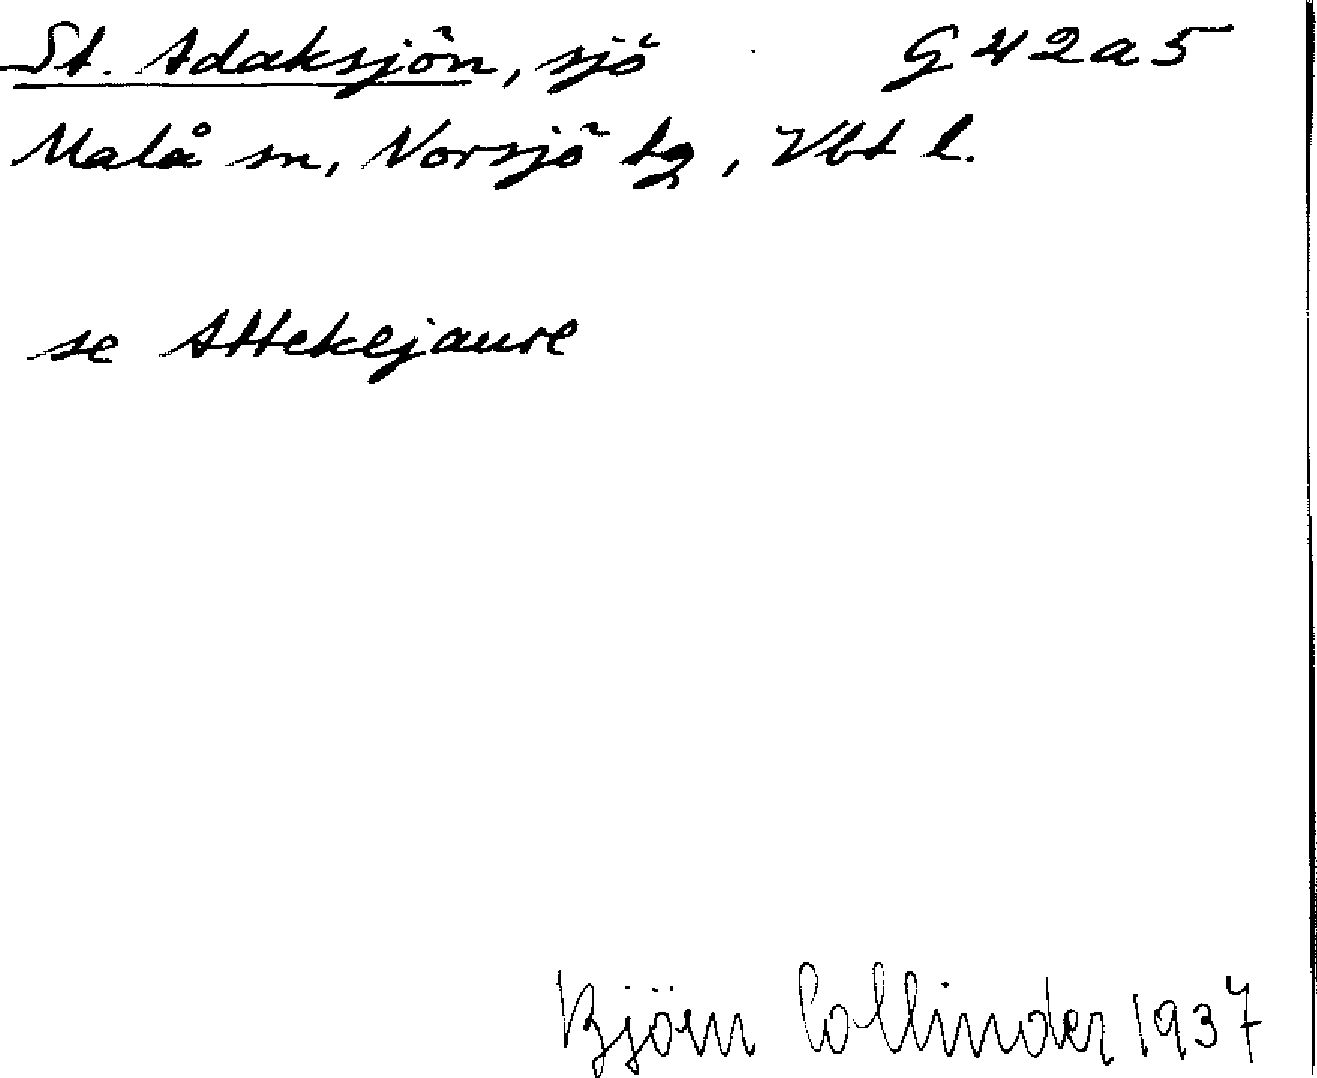 St. Adaksjön, sjö G 42 a 5
Malå sn, Norsjö tg, Vbt l.
se Attekejaure
Björn Collinder 1937